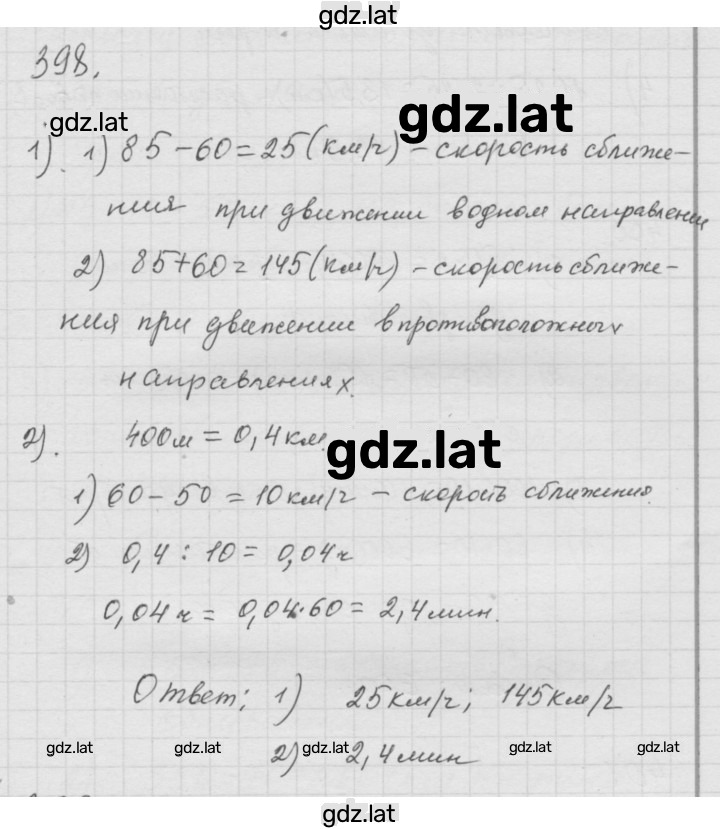 gdz.lat
398.
gdz.lat
gdz.lat
1). 1) 85 - 60 = 25 (км/ч) - скорость сближе-
ния при движении в одном направлении
2) 85 + 60 = 145 (км/ч) - скорость сближе-
ния при движении в противоположных
направлениях.
2). 400 м = 0,4 км
gdz.lat
1) 60 - 50 = 10 км/ч - скорость сближения.
2) 0,4 : 10 = 0,04 ч
0,04 ч = 0,04 · 60 = 2,4 мин.
Ответ: 1) 25 км/ч; 145 км/ч
gdz.lat gdz.lat gdz.lat gdz.lat gdz.lat
2) 2,4 мин
gdz.lat